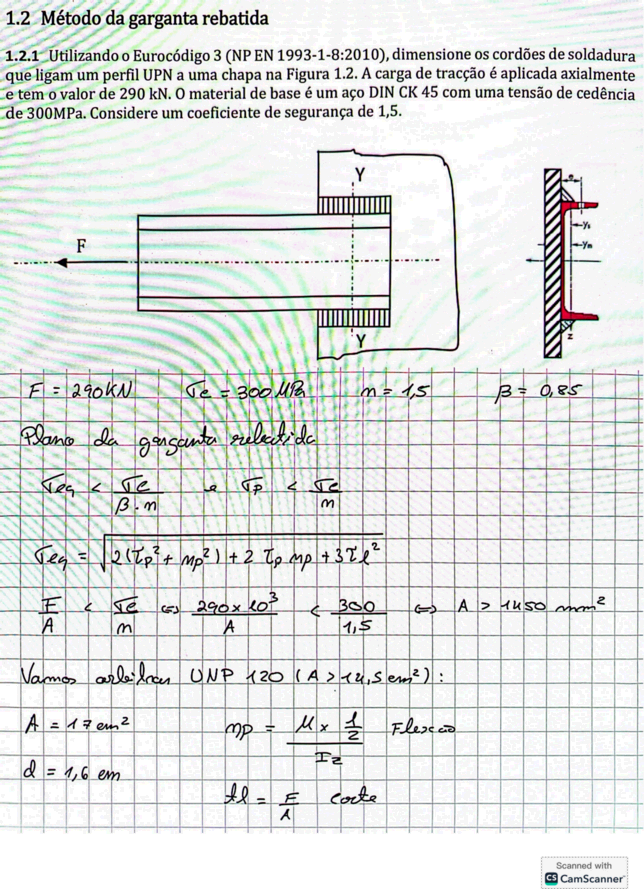 1.2 Método da garganta rebatida
1.2.1 Utilizando o Eurocódigo 3 (NP EN 1993-1-8:2010), dimensione os cordões de soldadura
que ligam um perfil UPN a uma chapa na Figura 1.2. A carga de tracção é aplicada axialmente
e tem o valor de 290 kN. O material de base é um aço DIN CK 45 com uma tensão de cedência
de 300MPa. Considere um coeficiente de segurança de 1,5.
Y
F
Y
e
ys
ym
z
F = 290KN σe = 300 MPa m = 1,5 β = 0,85
Plano da garganta rebatida
σeq < σe / β.m e σp < σe / m
σeq = √2(τp² + mp²) + 2 τp mp + 3τl²
F/A < σe/m ⇔ 290×10³/A < 300/1,5 ⇔ A > 1450 mm²
Vamos arbitrar UNP 120 (A > 14,5 cm²):
A = 17 cm² mp = M × 1/2 / Iz Flexão
d = 1,6 cm
tl = F/A corte
Scanned with
CS CamScanner